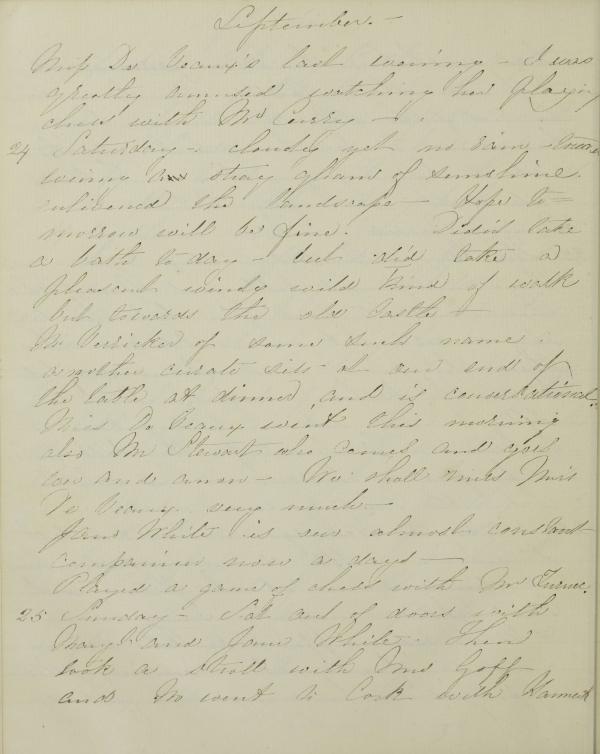 September. —
Miss De Veaux's last evening — I was
greatly amused watching her playing
chess with Mr Curry —
24 Saturday — cloudy yet no rain — towards
evening a stray gleam of sunshine
enlivened the landscape — Hope to=
morrow will be fine. Didn't take
a bath to day — but did take a
pleasant windy wild kind of walk
but towards the old Castle —
Mr Verricker of some such name
another curate sits at our end of
the table at dinner and is conversational.
Miss De Veaux went this morning
also Mr Stewart who comes and goes
ever and anon — We shall miss Miss
De Veaux very much —
Jane White is our almost constant
companion now a days —
Played a game of chess with Mr Turner.
25 Sunday — Sat out of doors with
Mary and Jane White. Then
took a stroll with Mrs Goff
and went to Cork with Hannah